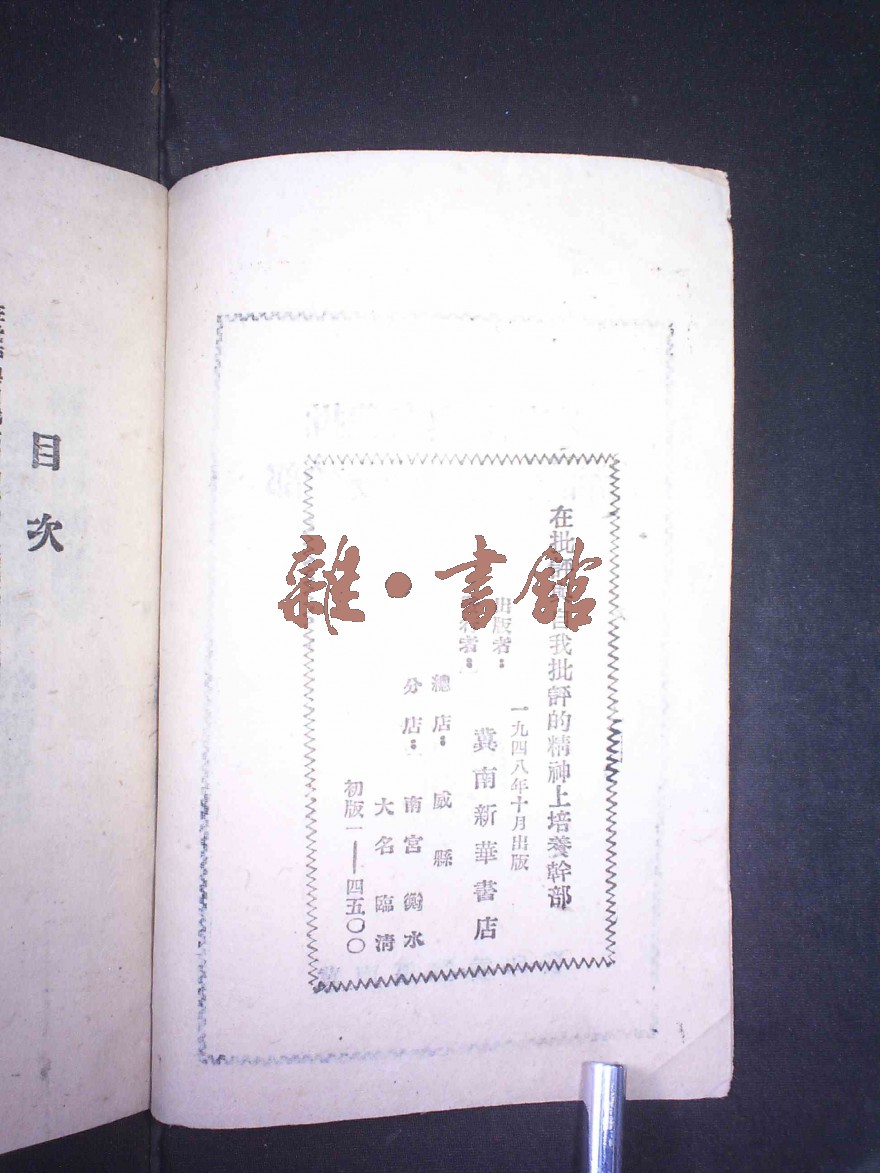 在批評與自我批評的精神上培養幹部
一九四八年十月出版
出版者：
發行者：
冀南新華書店
總店：威縣
分店：南宮 衡水
大名 臨清
初版一——四五〇〇
目次
雜·書館